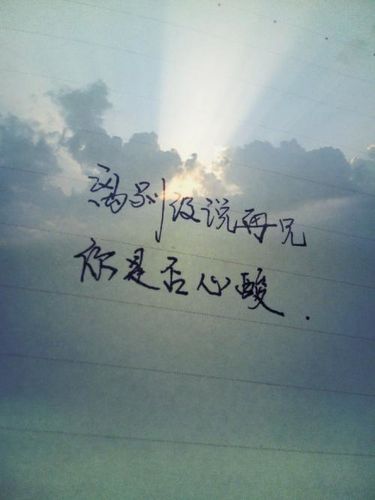 离别没说再见
你是否心酸.